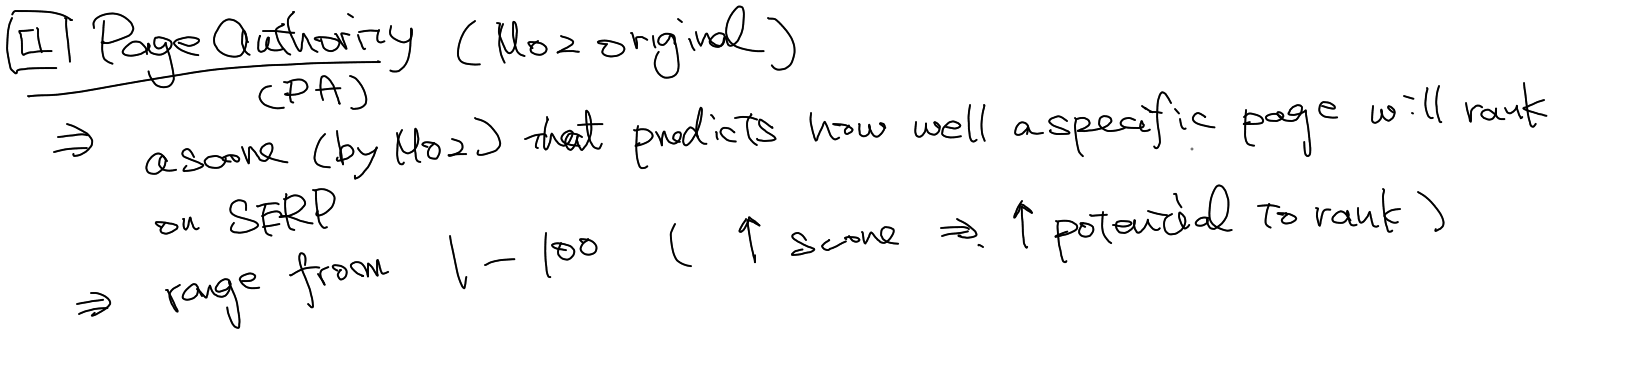 1 Page Authority (Moz original)
(PA)
⇒ a score (by Moz) that predicts how well a specific page will rank
on SERP
⇒ range from 1 - 100 ( ↑ score ⇒ ↑ potential to rank )